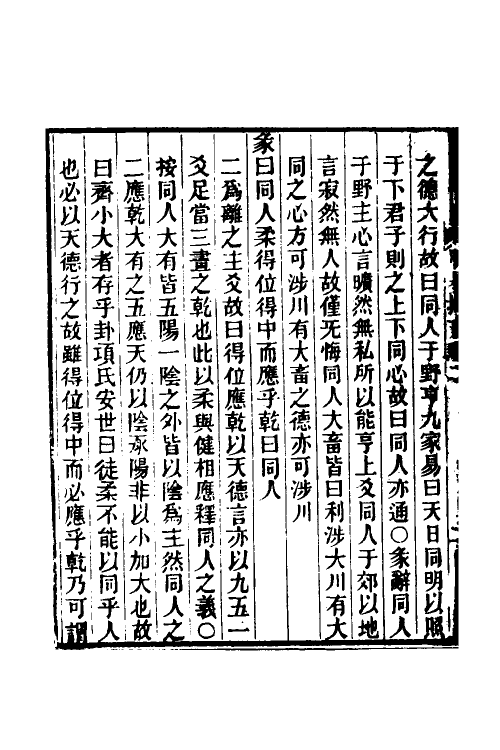 之德大行故曰同人于野亨九家易曰天日同明以照
于下君子則之上下同心故曰同人亦通○彖辭同人
于野主心言曠然無私所以能亨上爻同人于郊以地
言寂然無人故僅无悔同人大畜皆曰利涉大川有大
同之心方可涉川有大畜之德亦可涉川
彖曰同人柔得位得中而應乎乾曰同人
二爲離之主爻故曰得位應乾以天德言亦以九五一
爻足當三畫之乾也此以柔與健相應釋同人之義○
按同人大有皆五陽一陰之外皆以陰爲主然同人之
二應乾大有之五應天仍以陰承陽非以小加大也故
曰齊小大者存乎卦項氏安世曰徒柔不能以同乎人
也必以天德行之故雖得位得中而必應乎乾乃可謂